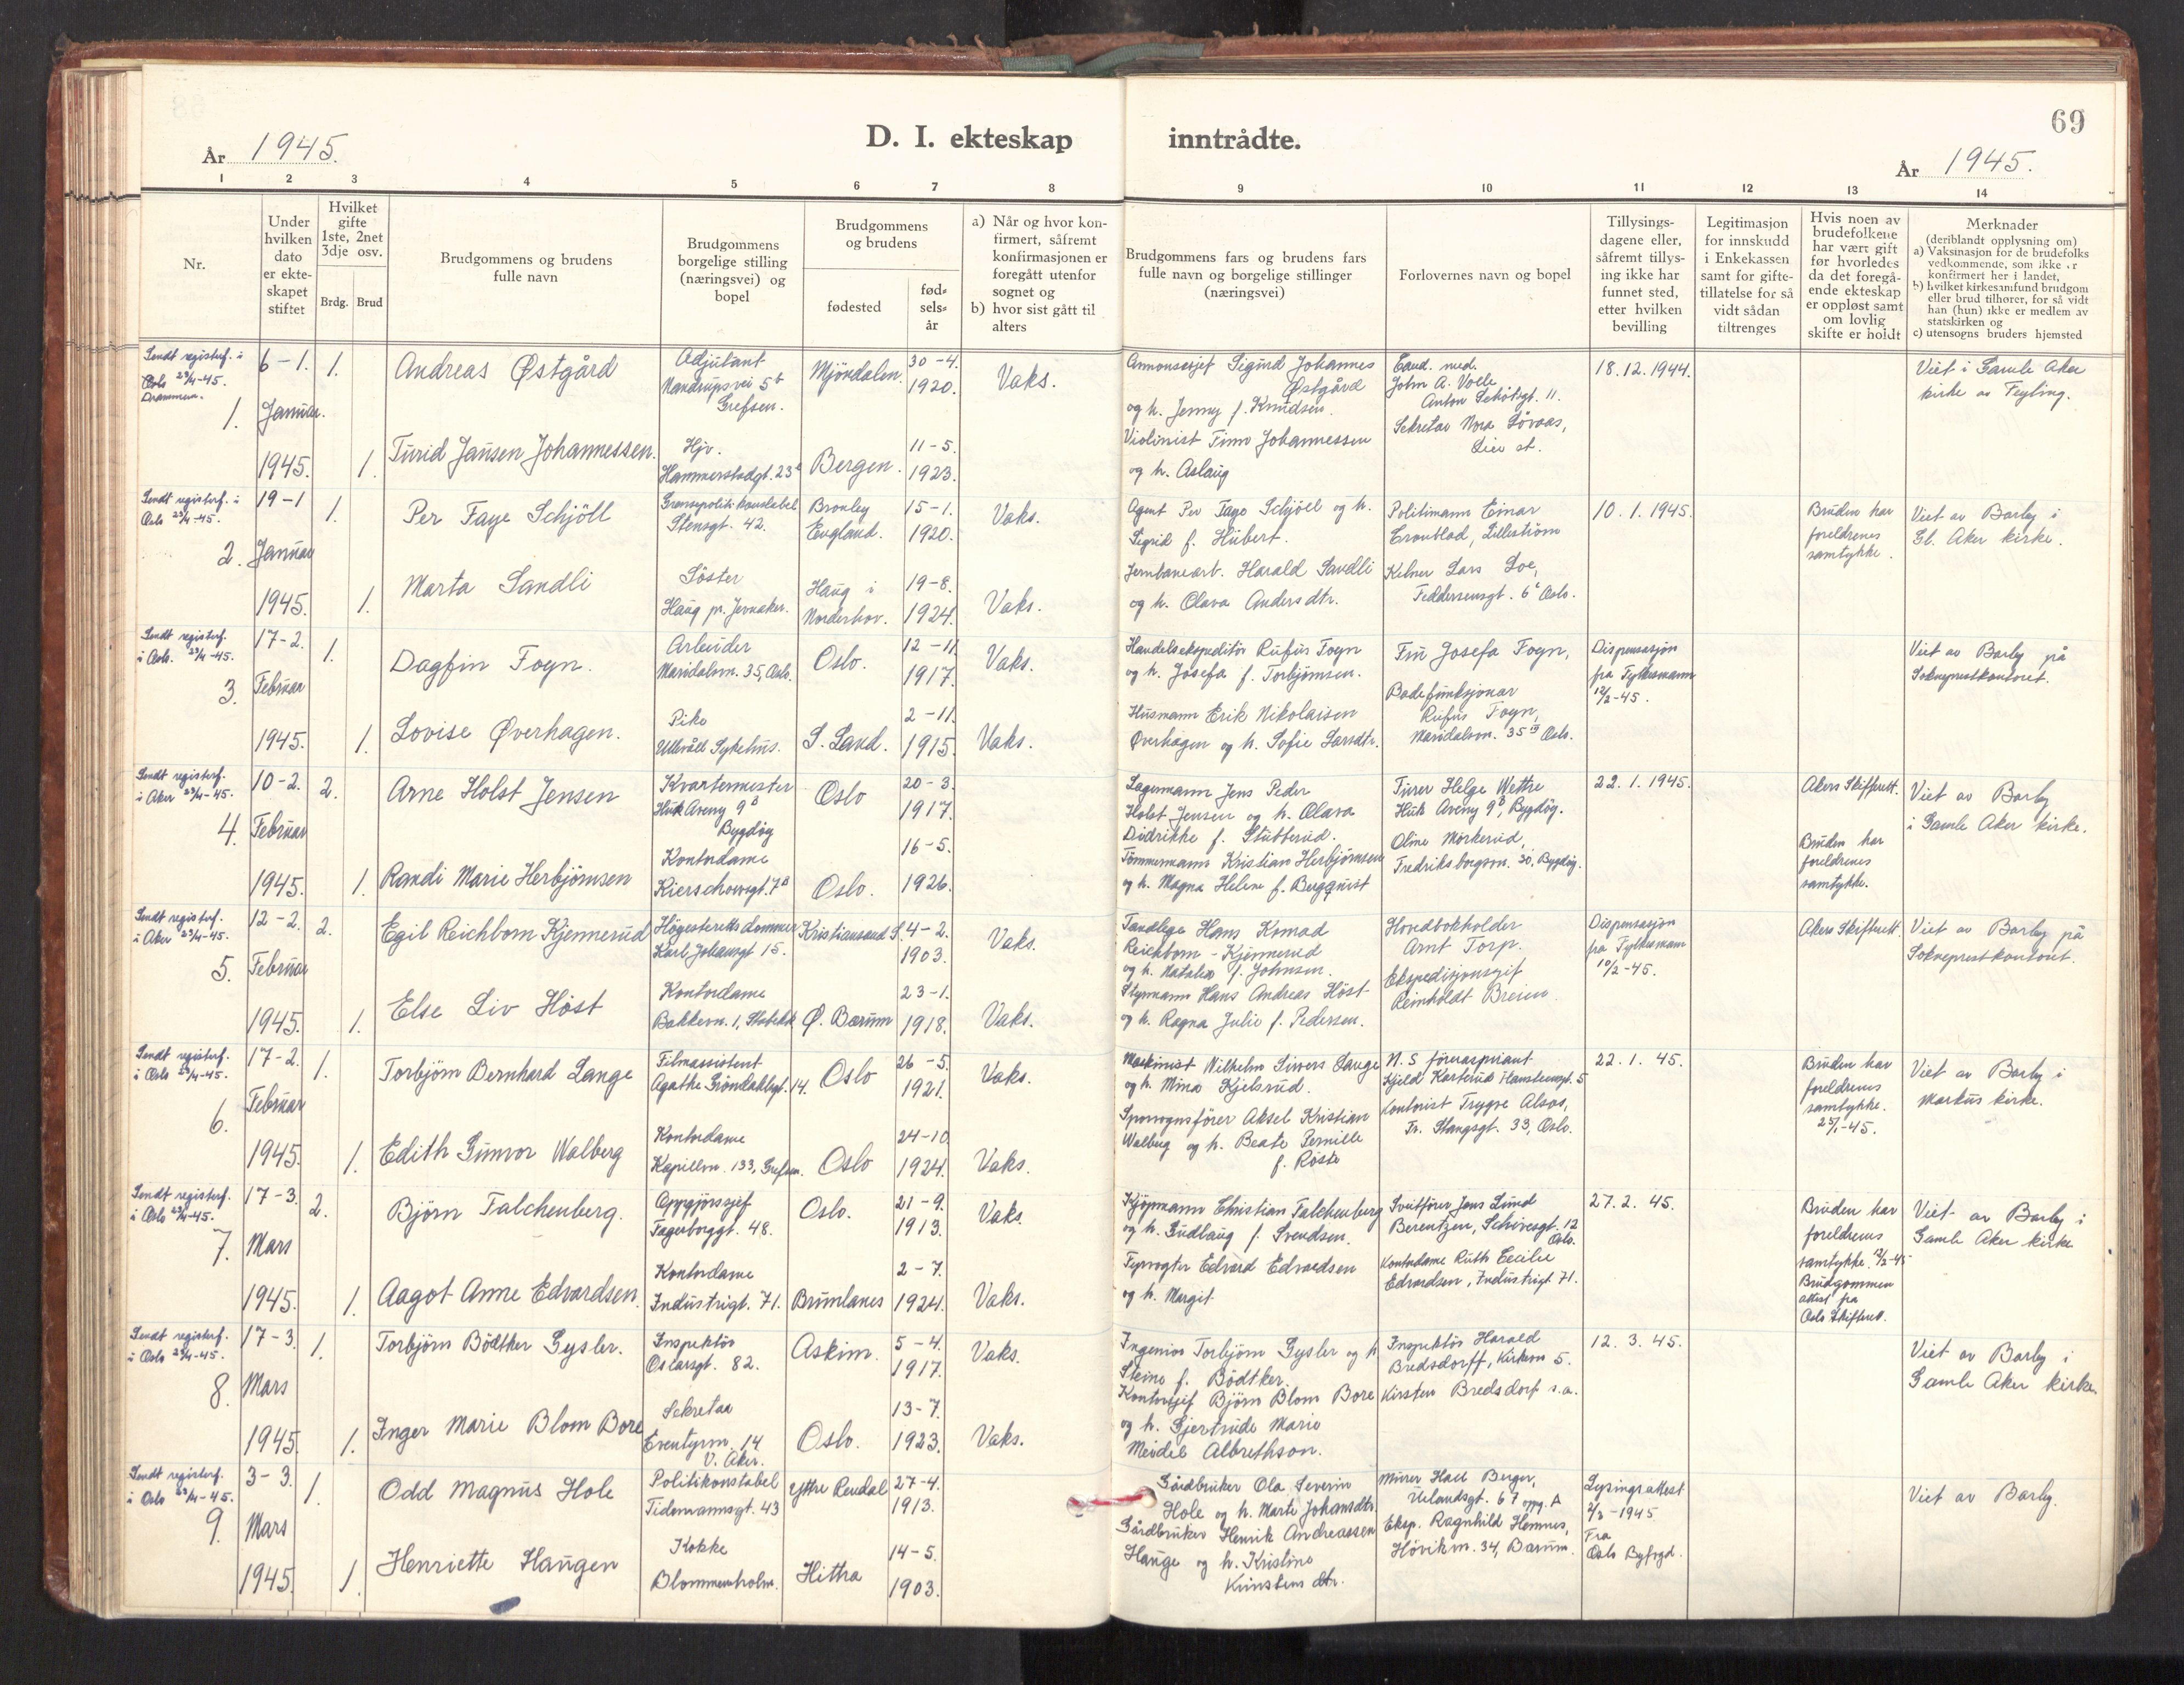 69
År 1945.
D. I. ekteskap inntrådte.
År 1945.
1 2 3 4 5 6 7 8 9 10 11 12 13 14
Nr.
Under
hvilken
dato
er ekte-
skapet
stiftet
Hvilket
gifte
1ste, 2net
3dje osv.
Brdg. Brud
Brudgommens og brudens
fulle navn
Brudgommens
borgelige stilling
(næringsvei) og
bopel
Brudgommens
og brudens
fødested
fød-
sels-
år
a) Når og hvor kon-
firmert, såfremt
konfirmasjonen er
foregått utenfor
sognet og
b) hvor sist gått til
alters
Brudgommens fars og brudens fars
fulle navn og borgelige stillinger
(næringsvei)
Forlovernes navn og bopel
Tillysings-
dagene eller,
såfremt tillys-
ing ikke har
funnet sted,
etter hvilken
bevilling
Legitimasjon
for innskudd
i Enkekassen
samt for gifte-
tillatelse for så
vidt sådan
tiltrenges
Hvis noen av
brudefolkene
har vært gift
før hvorledes
da det foregå-
ende ekteskap
er oppløst samt
om lovlig
skifte er holdt
Merknader
(deriblandt opplysning om)
a) Vaksinasjon for de brudefolks
vedkommende, som ikke er
konfirmert her i landet,
b) hvilket kirkesamfund brudgom
eller brud tilhører, for så vidt
han (hun) ikke er medlem av
statskirken og
c) utensogns bruders hjemsted
Sendt registerf. i
Oslo 23/4-45.
Drammen.
1.
6-1.
Januar.
1945.
1.
Andreas Østgård
Adjutant
Nandrupsvei 5b
Grefsen.
Mjöndalen.
30-4.
1920.
Vaks.
Annonsesjef Sigurd Johannes
Østgård
og h. Jenny f. Knudsen.
Cand. med.
John A. Voll
Anton Schötsgt. 11.
18.12.1944.
Viet i Gamle Aker
kirke av Feyling.
1.
Turid Jansen Johannessen.
Hjv.
Hammerstadgt. 23
Bergen.
11-5.
1923.
Violinist Finn Johannessen
og h. Aslaug
Sekretær Nora Lövaas,
Lier st.
Sendt registerf. i
Oslo 23/4-45.
2.
19-1
Januar
1945.
1.
Per Faye Schjöll
Grensepoliti konstabel
Stensgt. 42.
Bromley
England.
15-1.
1920.
Vaks.
Agent Per Faye Schjöll og h.
Sigrid f. Hubert.
Politimann Einar
Cronblad, Lilleström
10.1.1945.
Bruden har
foreldrenes
samtykke.
Viet av Barby i
Gl. Aker kirke.
1.
Marta Sandli
Söster
Haug pr. Jevnaker.
Haug i
Norderhov.
19-8.
1924.
Vaks.
Jernbanearb. Harald Sandli
og h. Olava Andersdtr.
Kelner Lars Loe,
Feddersensgt. 6 Oslo.
Sendt registerf.
i Oslo. 23/4-45.
3.
17-2.
Februar
1945.
1.
Dagfin Foyn.
Arbeider
Maridalsvn. 35, Oslo.
Oslo.
12-11.
1917.
Vaks.
Handelsekspeditör Rufus Foyn
og h. Josefa f. Torbjörnsen.
Fru Josefa Foyn,
Dispensasjon
fra Fylkesmann
12/2-45.
Viet av Barby på
Sokneprestkontoret.
1.
Lovise Øverhagen.
Pike
Ullevål Sykehus.
S. Land.
2-11.
1915.
Vaks.
Husmann Erik Nikolaisen
Øverhagen og h. Sofie Larsdtr.
Badefunksjonær
Rufus Foyn,
Maridalsvn. 35 Oslo.
Sendt registerf.
i Aker 23/4-45.
4.
10-2.
Februar
1945.
2.
Arne Holst Jensen
Kvartermester
Huk Aveny 9B
Bygdöy
Oslo
20-3.
1917.
Lagermann Jens Peder
Holst Jensen og h. Olava
Didrikke f. Stubberud.
Furer Helge Wettre
Huk Aveny 9B, Bygdöy.
22.1.1945.
Akers Skifterett.
Viet av Barby
i Gamle Aker kirke.
1.
Randi Marie Herbjörnsen
Kontordame
Kierschowsgt. 7B
Oslo.
16-5.
1926.
Tömmermann Kristian Herbjörnsen
og h. Magna Helene f. Bergquist
Oline Mörkerud,
Fredriksborgvn. 30, Bygdöy.
Bruden har
foreldrenes
samtykke.
Sendt registerf.
i Aker 23/4-45.
5.
12-2.
Februar
1945.
2.
Egil Reichborn Kjennerud
Högesterettsdommer
Karl Johansgt 15.
Kristiansand S.
4-2.
1903.
Vaks.
Tandlege Hans Konrad
Reichborn-Kjennerud
og h. Natalie f. Johnsen.
Hovedbokholder
Arnt Torp.
Dispensasjon
fra Fylkesmann
10/2-45.
Akers Skifterett.
Viet av Barby på
Sokneprestkontoret.
1.
Else Liv Höst
Kontordame
Bakkevn. 1, Stabekk
Ø. Bærum
23-1.
1918.
Vaks.
Styrmann Hans Andreas Höst
og h. Ragna Julie f. Pedersen.
Ekspedisjonssjef
Reinholdt Breien.
Sendt registerf.
i Oslo 23/4-45.
6.
17-2.
Februar
1945.
1.
Torbjörn Bernhard Lange
Filmassistent
Agathe Gröndahlsgt. 14.
Oslo
26-5.
1921.
Vaks.
Maskinist Wilhelm Sivers Lange
og h. Mina Kjelsrud.
N.S föreraspirant
Kjeld Karterud Hansteensgt. 5
22.1.45.
Bruden har
foreldrenes
samtykke.
25/1-45.
Viet av Barby i
Markus kirke.
1.
Edith Gunvor Walberg
Kontordame
Kapellvn. 133, Grefsen.
Oslo
24-10.
1924.
Vaks.
Sporvognsförer Aksel Kristian
Walberg og h. Beate Pernille
f. Röste
Kontorist Trygve Alsos,
Fr. Stangsgt. 33, Oslo.
Sendt registerf.
i Oslo 23/4-45.
7.
17-3.
Mars
1945.
2.
Björn Falchenberg.
Oppgjörssjef
Fagerborggt. 48.
Oslo.
21-9.
1913.
Vaks.
Kjöpmann Christian Falchenberg
og h. Gudlaug f. Svendsen.
Svitförer Jens Lund
Berentzen, Schivesgt. 12
Oslo.
27.2.45.
Bruden har
foreldrenes
samtykke. 12/2-45
Brudgommen
attest fra
Oslo Skifterett.
Viet av Barby i
Gamle Aker kirke
1.
Aagot Anne Edvardsen.
Kontordame
Industrigt. 71.
Brunlanes
2-7.
1924.
Vaks.
Fyrvogter Edvard Edvardsen
og h. Margit
Kontordame Ruth Cecilie
Edvardsen, Industrigt 71.
Sendt registerf.
i Oslo 23/4-45.
8.
17-3.
Mars
1945.
1.
Torbjörn Bödtker Gysler.
Inspektör
Oscarsgt. 82.
Askim.
5-4.
1917.
Vaks.
Ingeniör Torbjörn Gysler og h
Steine f. Bödtker.
Inspektör Harald
Bredsdorff, Kirkevn 5.
12.3.45.
Viet av Barby i
Gamle Aker kirke.
1.
Inger Marie Blom Bore
Sekretær
Eventyrvn. 14
V. Aker.
Oslo.
13-7.
1923.
Vaks.
Kontorsjef Björn Blom Bore
og h. Gjertrude Marie
Meidel Albrethson.
Kirsten Bredsdorf s.a.
Sendt registerf.
i Oslo 23/4-45.
9.
3-3.
Mars
1945.
1.
Odd Magnus Hole
Politikonstabel
Tidemannsgt. 43
Yttre Rendal
27-4.
1913.
Gårdbruker Ola Severin
Hole og h. Marte Johansdtr.
Murer Hall Berger,
Uelandsgt. 67 oppg. A
Lysingsattest
2/3-1945
Fra
Oslo Byfogd.
Viet av Barby.
1.
Henriette Haugen
Kokke
Blommenholm.
Hitra
14-5.
1903.
Gårdbruker Henrik Andreassen
Hauge og h. Kristine
Kunstens dtr.
Eksp. Ragnhild Hemnes,
Hövikvn. 34, Bærum.